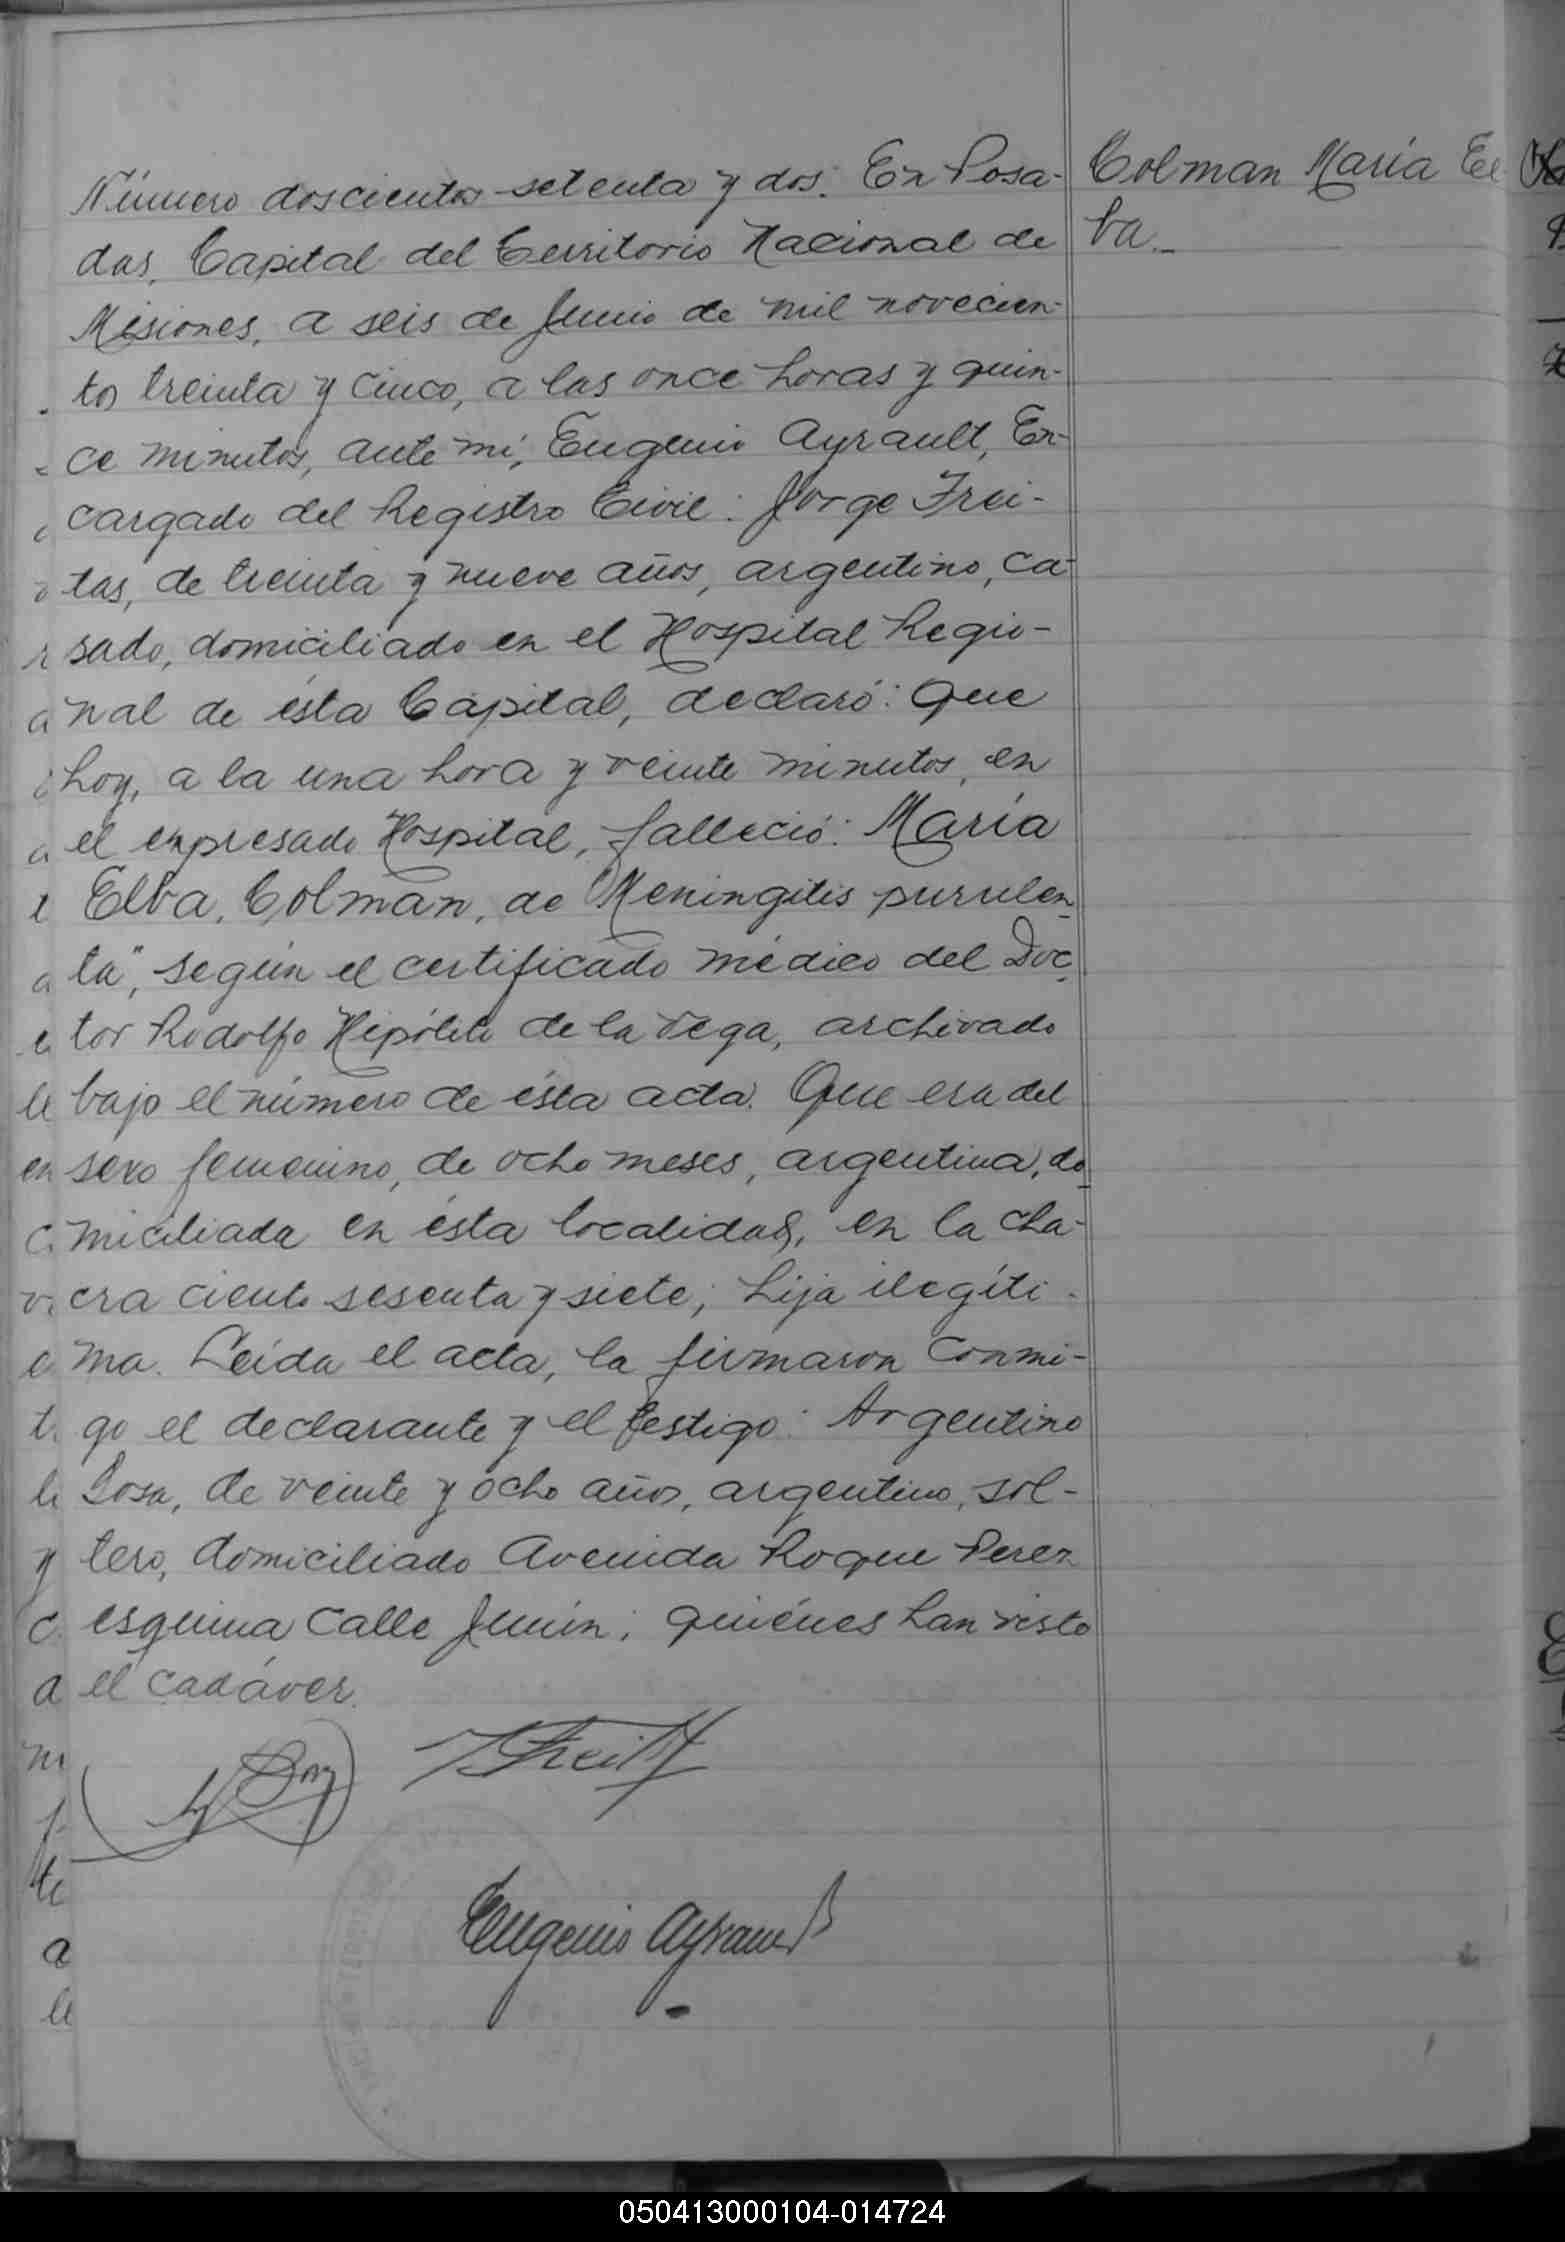 Número doscientos setenta y dos. En Posa-
das, Capital del Territorio Nacional de
Misiones, a seis de Junio de mil novecien-
tos treinta y cinco, a las once horas y quin-
ce minutos, ante mí, Eugenio Ayrault, En-
cargado del Registro Civil: Jorge Frei-
tas, de treinta y nueve años, argentino, ca-
sado, domiciliado en el Hospital Regio-
nal de ésta Capital, declaró: Que
hoy, a la una hora y veinte minutos, en
el expresado Hospital, falleció: María
Elba, Colman, de "Meningitis purulen-
ta", según el certificado médico del Doc-
tor Rodolfo Hipólito de la Vega, archivado
bajo el número de ésta acta. Que era del
sexo femenino, de ocho meses, argentina, do-
miciliada en ésta localidad, en la cha-
cra ciento sesenta y siete; hija ilegíti-
ma. Leída el acta, la firmaron conmi-
go el declarante y el testigo: Argentino
Sosa, de veinte y ocho años, argentino, sol-
tero, domiciliado Avenida Roque Perez
esquina Calle Junín; quiénes han visto
el cadáver.
Eugenio Ayrault
Colman María El
ba.-
050413000104-014724